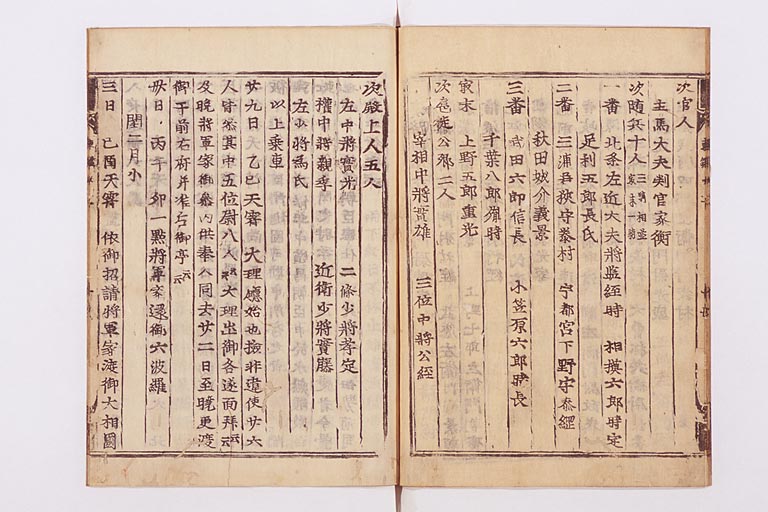 次官人
主馬大夫判官家衡
次随兵十人 三騎相並 最末一騎
一番 北条左近大夫將監経時 相摸六郎時定
足利五郎長氏
二番 三浦若狹守泰村 宇都宮下野守泰綱
秋田城介義景
三番 武田六郎信長 小笠原六郎時長
千葉八郎胤時
寂末 上野五郎重光
次扈從公卿二人
宰相中將實雄 三位中將公經
次殿上人五人
左中將實光 二條少將孝定
權中將親季 近衛少將實藤
左少將爲氏
以上乗車
廿九日 乙巳天霽 大理廳始也撿非違使廿六
人皆參其中五位尉八人云云大理出御各遂面拜云云
及晩將軍家御參内供奉人同去廿二日至曉更渡
御于前右府并准后御亭云云
卅日 丙午天 卯一點將軍家還御六波羅
閏二月小
三日 己酉天霽 依御招請將軍家渡御大相國